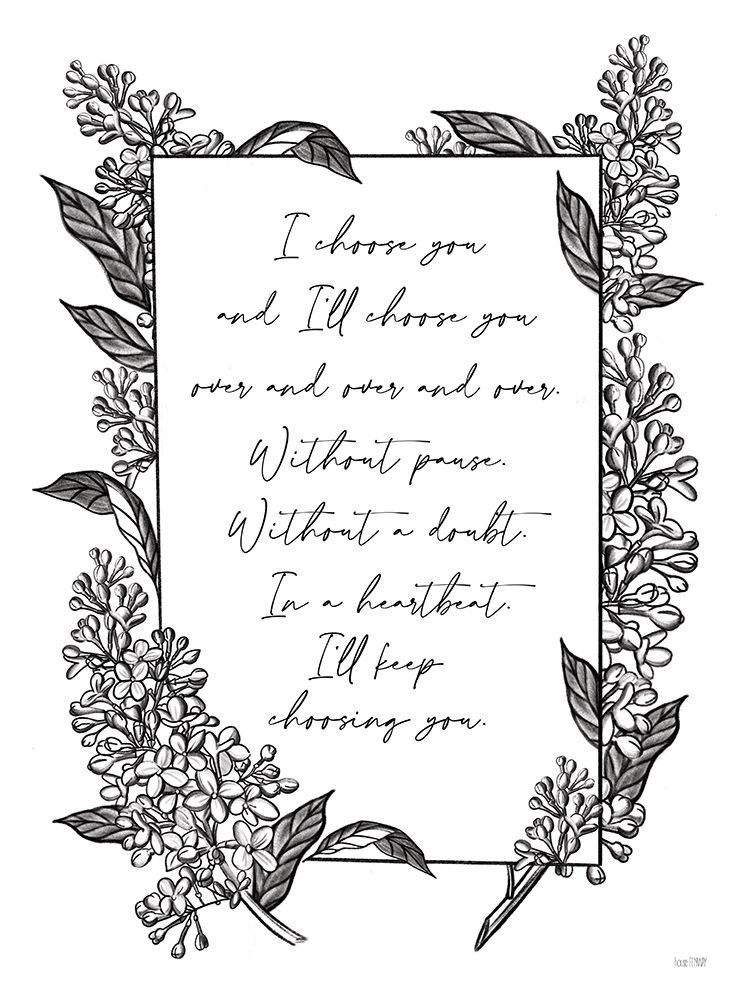 I choose you
and I'll choose you
over and over and over.
Without pause.
Without a doubt.
In a heartbeat.
I'll keep
choosing you.
house FENWAY